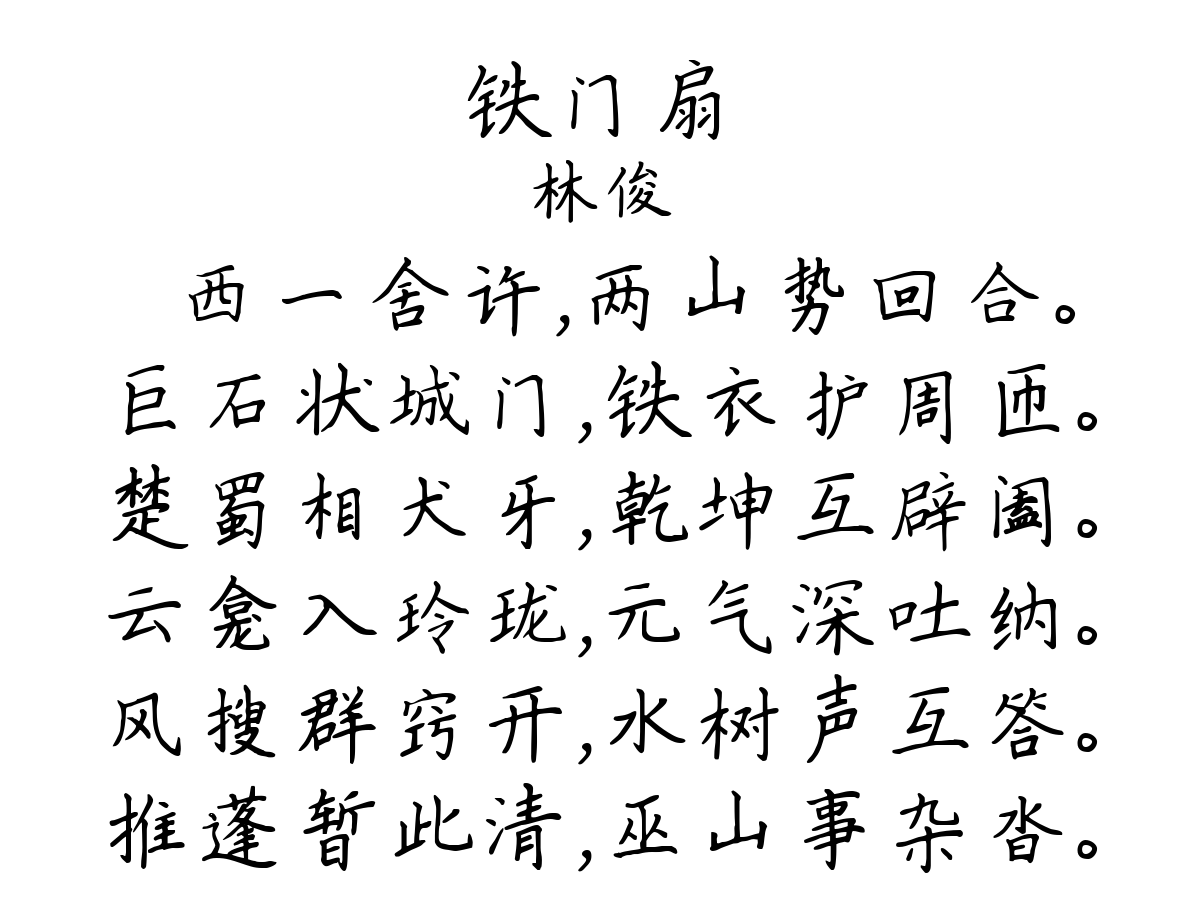 铁门扇
林俊
西一舍许,两山势回合。
巨石状城门,铁衣护周匝。
楚蜀相犬牙,乾坤互辟阖。
云龛入玲珑,元气深吐纳。
风搜群窍开,水树声互答。
推蓬暂此清,巫山事杂沓。